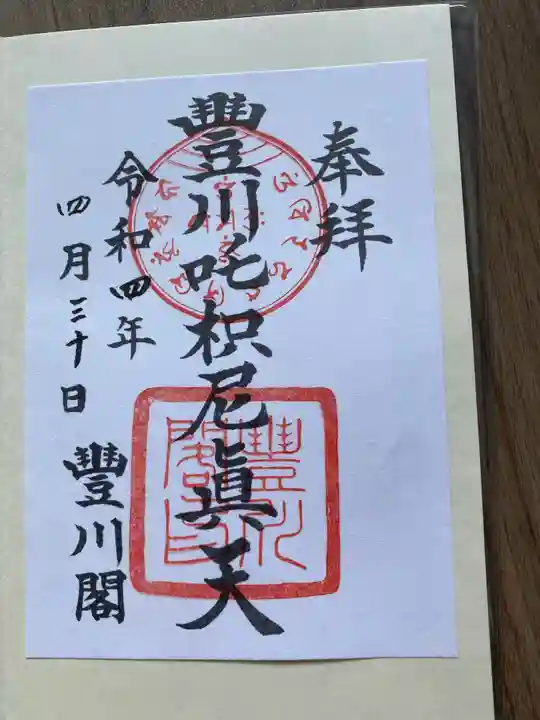 奉拝
豐川吒枳尼眞天
令和四年
四月三十日
豐川閣
豐川
閣印